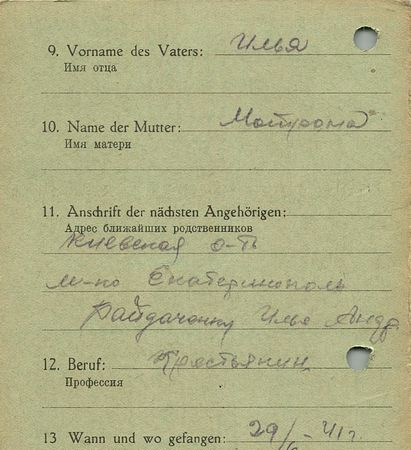 9. Vorname des Vaters: Илья
Имя отца
10. Name der Mutter: Мотрона
Имя матери
11. Anschrift der nächsten Angehörigen:
Адрес ближайших родственников
Киевская о-ть
м-ко Екатеринополь
Байдаченку Илье Андр
12. Beruf: Крестьянин
Профессия
13 Wann und wo gefangen: 29/6-41г.